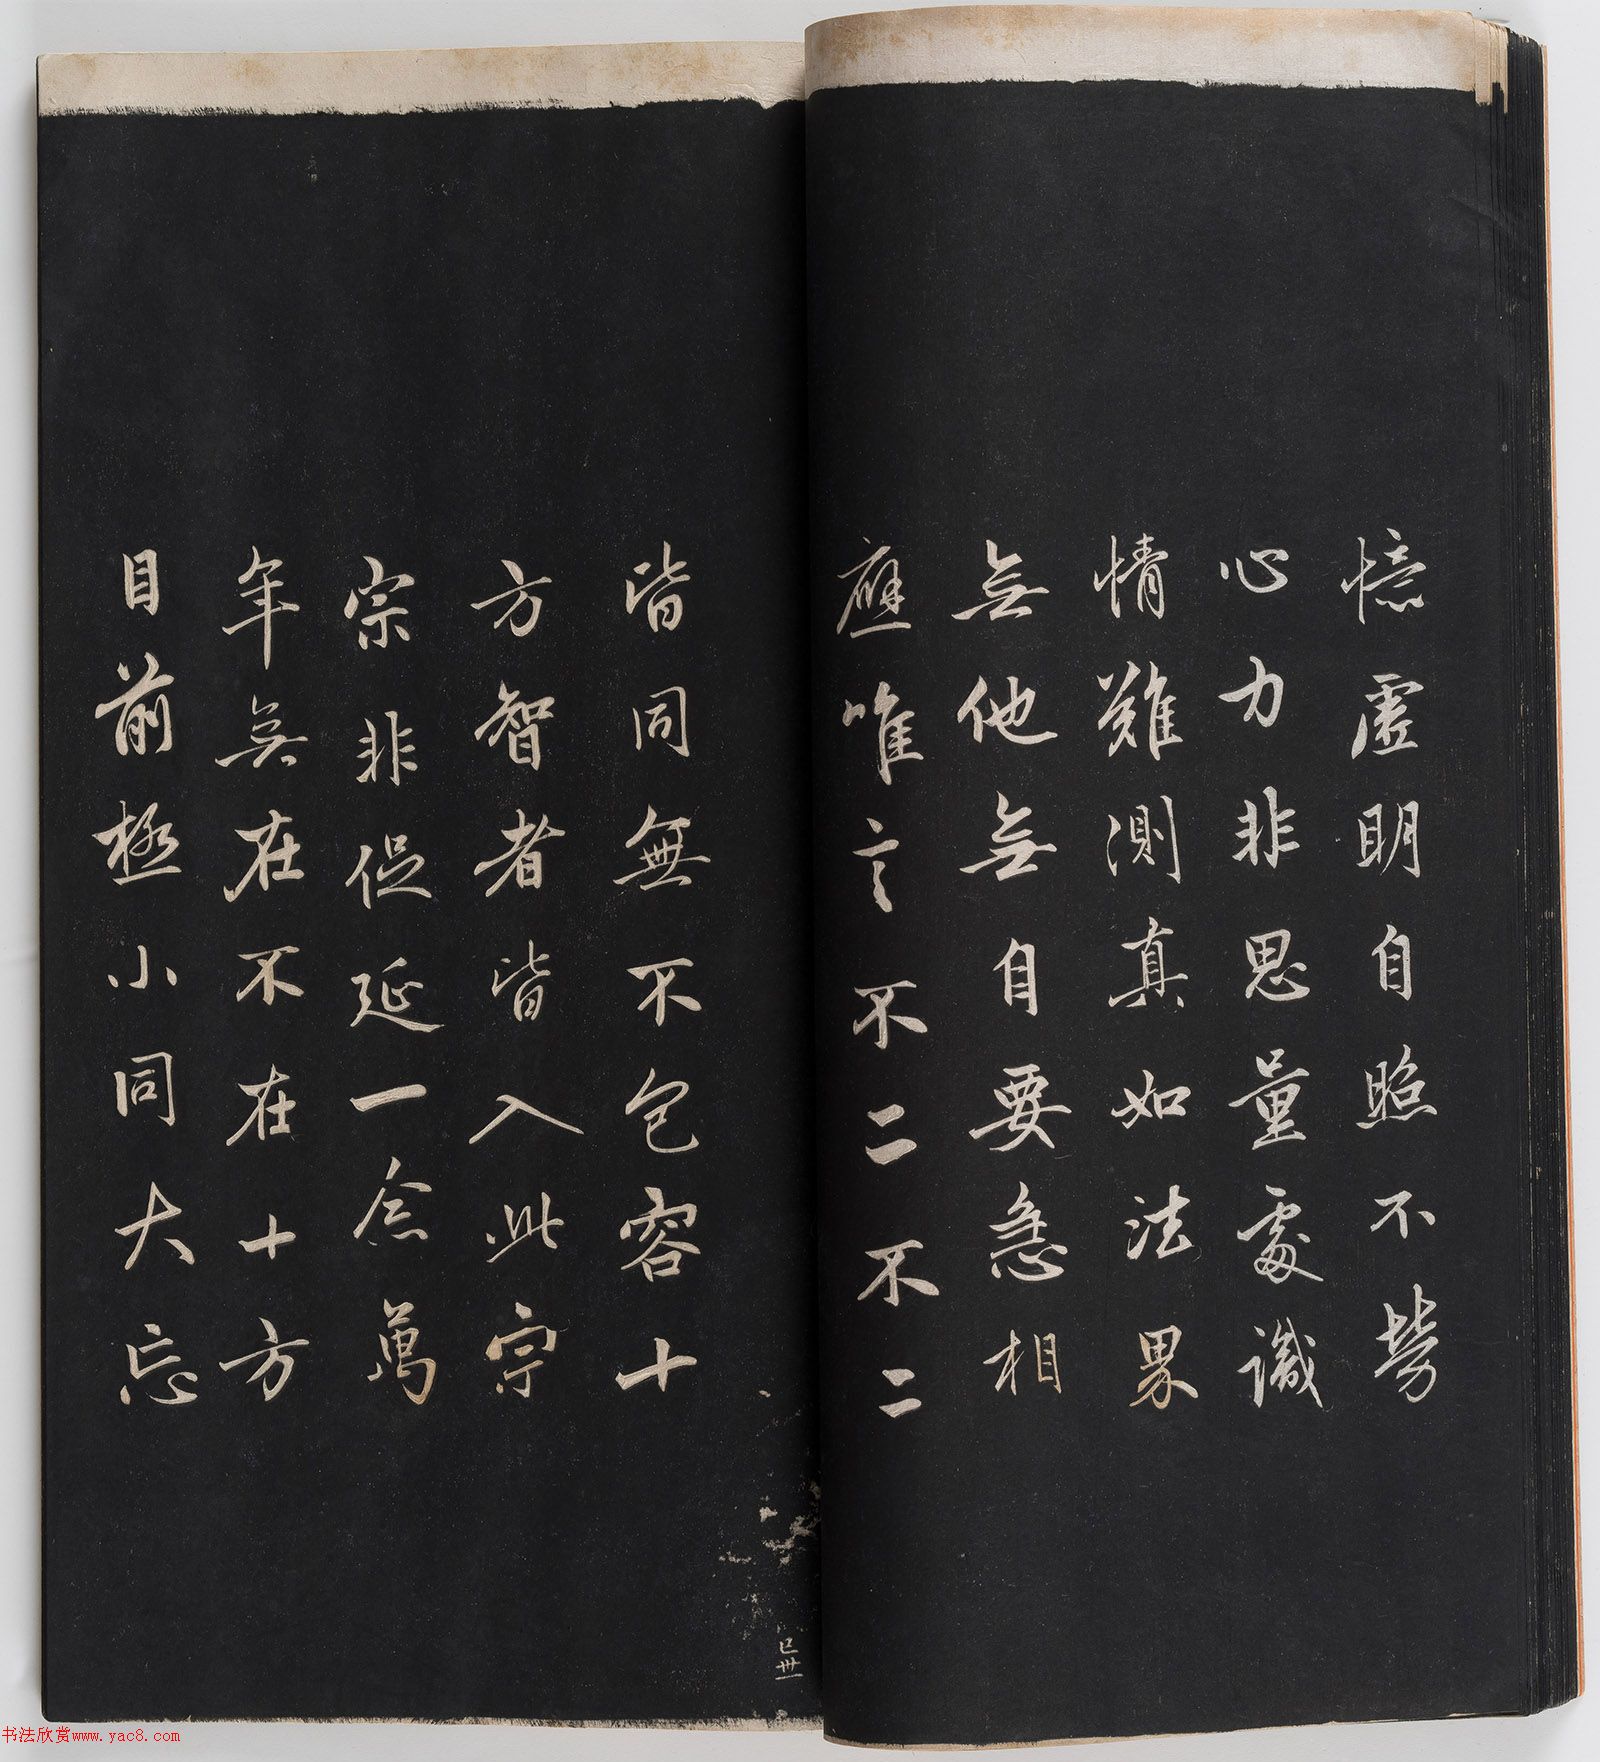 憶虛明自照不勞
心力非思量處識
情難測真如法界
無他無自要急相
應唯言不二不二
皆同無不包容十
方智者皆入此宗
宗非促延一念萬
年無在不在十方
目前極小同大忘
巳卅一
书法欣赏www.yac8.com